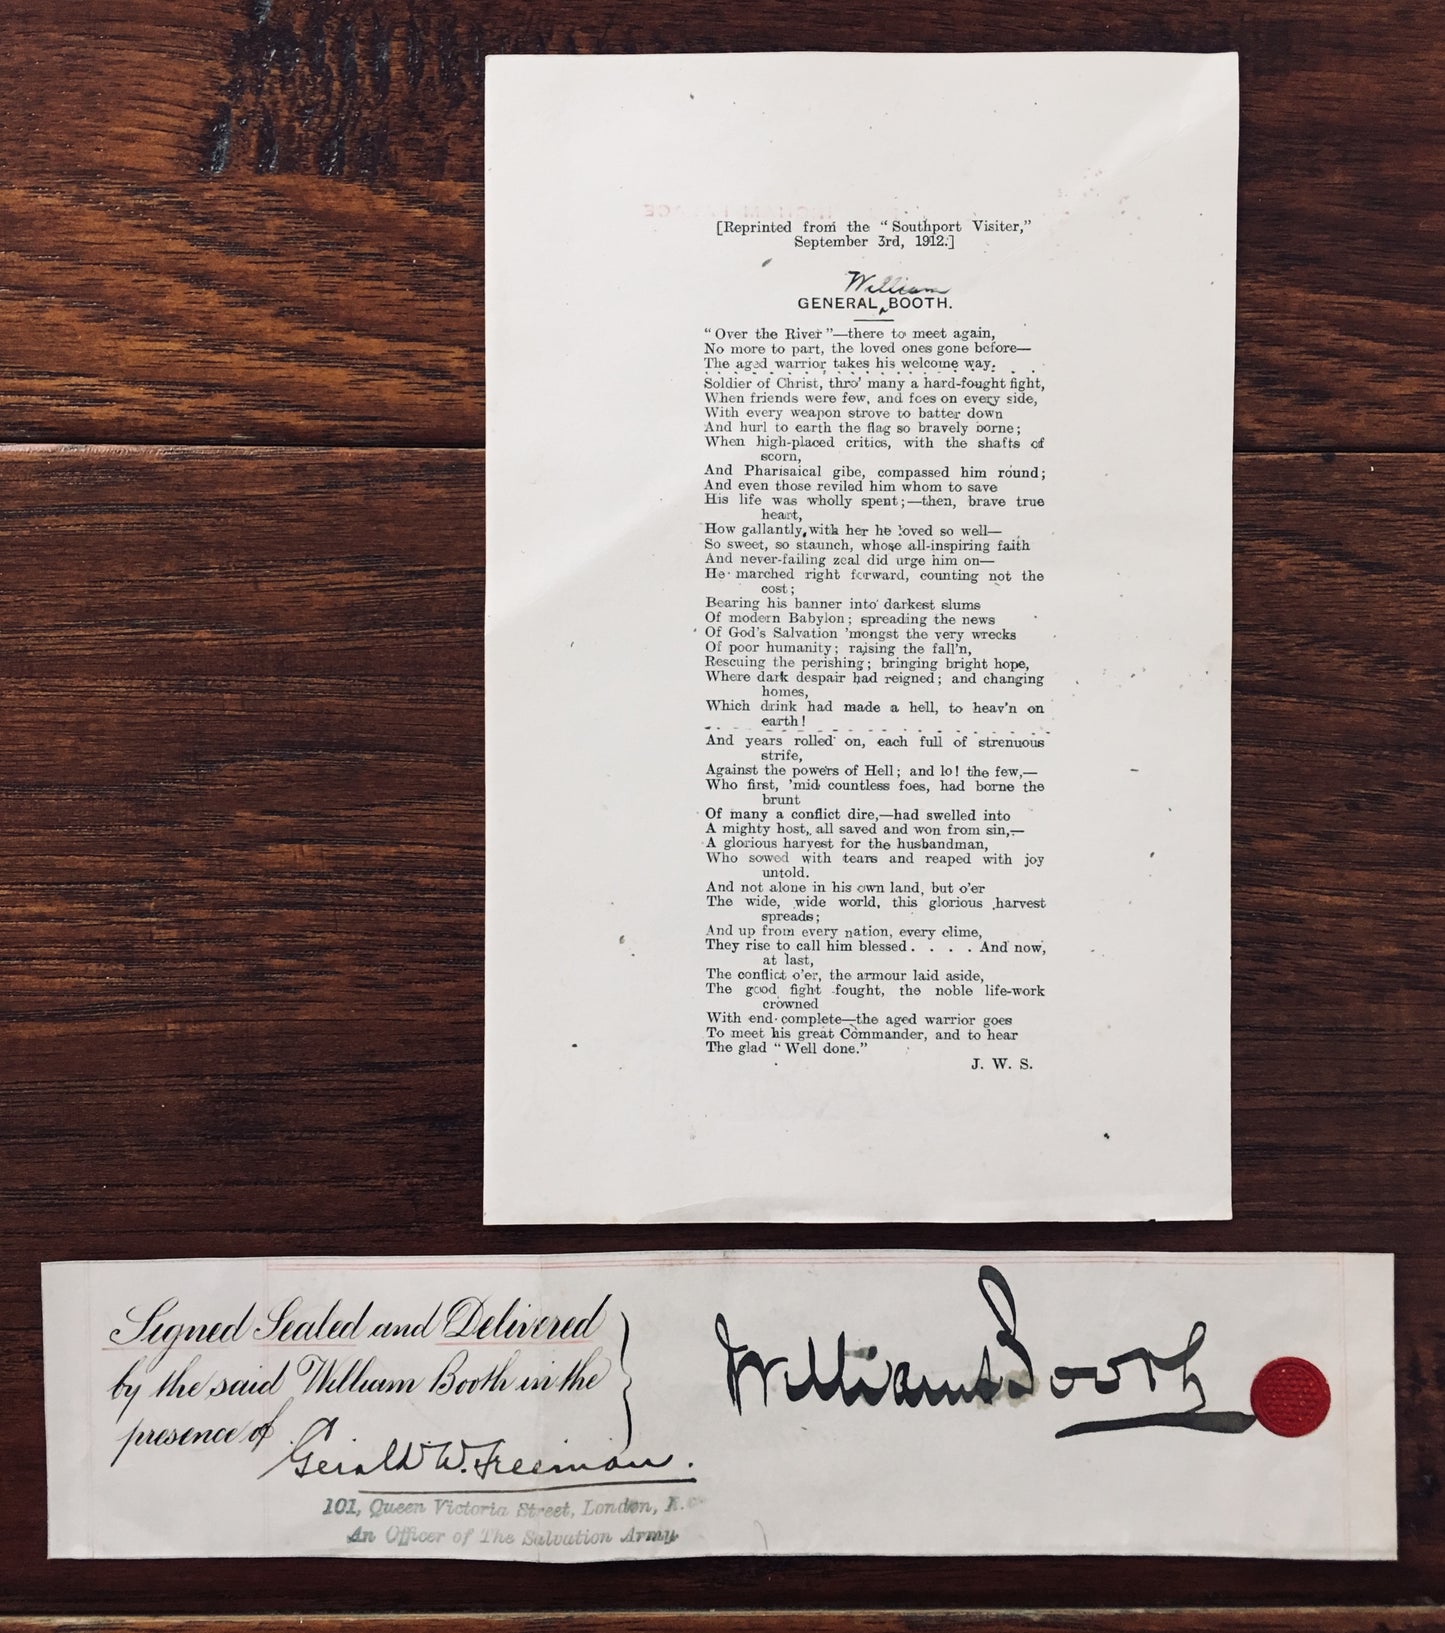 [Reprinted from the "Southport Visiter,"
September 3rd, 1912.]
William
GENERAL ‸ BOOTH.
"Over the River"—there to meet again,
No more to part, the loved ones gone before—
The aged warrior takes his welcome way.
Soldier of Christ, thro' many a hard-fought fight,
When friends were few, and foes on every side,
With every weapon strove to batter down
And hurl to earth the flag so bravely borne;
When high-placed critics, with the shafts of
scorn,
And Pharisaical gibe, compassed him round;
And even those reviled him whom to save
His life was wholly spent;—then, brave true
heart,
How gallantly, with her he loved so well—
So sweet, so staunch, whose all-inspiring faith
And never-failing zeal did urge him on—
He marched right forward, counting not the
cost;
Bearing his banner into darkest slums
Of modern Babylon; spreading the news
Of God's Salvation 'mongst the very wrecks
Of poor humanity; raising the fall'n,
Rescuing the perishing; bringing bright hope,
Where dark despair had reigned; and changing
homes,
Which drink had made a hell, to heav'n on
earth!
And years rolled on, each full of strenuous
strife,
Against the powers of Hell; and lo! the few,—
Who first, 'mid countless foes, had borne the
brunt
Of many a conflict dire,—had swelled into
A mighty host, all saved and won from sin,—
A glorious harvest for the husbandman,
Who sowed with tears and reaped with joy
untold.
And not alone in his own land, but o'er
The wide, wide world, this glorious harvest
spreads;
And up from every nation, every clime,
They rise to call him blessed. . . . And now,
at last,
The conflict o'er, the armour laid aside,
The good fight fought, the noble life-work
crowned
With end complete—the aged warrior goes
To meet his great Commander, and to hear
The glad "Well done."
J. W. S.
Signed Sealed and Delivered
by the said William Booth in the
presence of
William Booth
Gerald W. Freeman.
101, Queen Victoria Street, London, E.C
An Officer of The Salvation Army